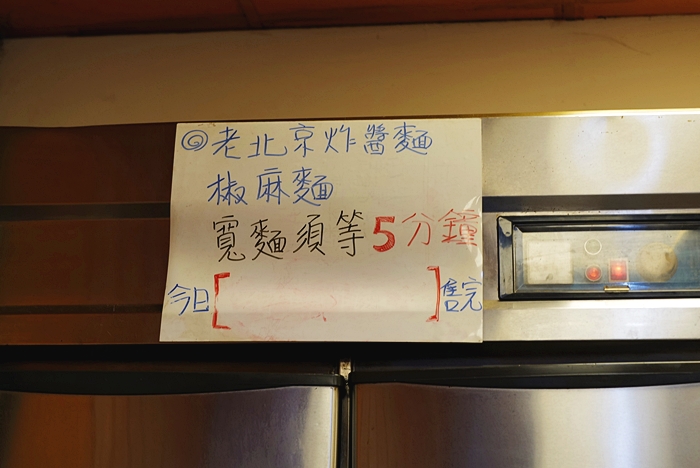 ◎老北京炸醬麵
椒麻麵
寬麵須等5分鐘
今日[ ]售完